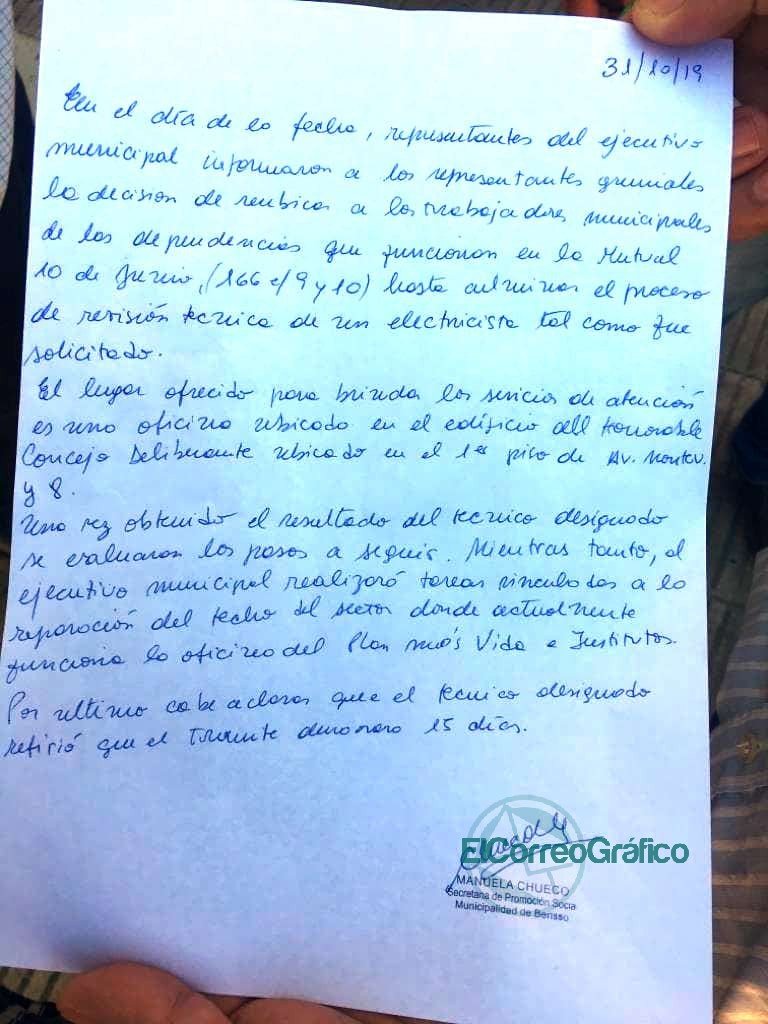 31/10/19
En el día de la fecha, representantes del ejecutivo
municipal informaron a los representantes gremiales
la decision de reubicar a los trabajadores municipales
de las dependencias que funcionan en la Mutual
10 de Junio, (166 e/ 9 y 10) hasta culminar el proceso
de revisión tecnica de un electricista tal como fue
solicitado.
El lugar ofrecido para brindar los servicios de atención
es una oficina ubicado en el edificio del Honorable
Concejo Deliberante ubicado en el 1er piso de Av. Montev.
y 8.
Una vez obtenido el resultado del tecnico designado
se evaluaran los pasos a seguir. Mientras tanto, el
ejecutivo municipal realizará tareas vinculadas a la
reparación del techo del sector donde actualmente
funciona la oficina del Plan más Vida e Institutos.
Por ultimo cabe aclarar que el tecnico designado
refirió que el tramite demorara 15 días.
ElCorreoGráfico
MANUELA CHUECO
Secretaria de Promoción Social
Municipalidad de Berisso